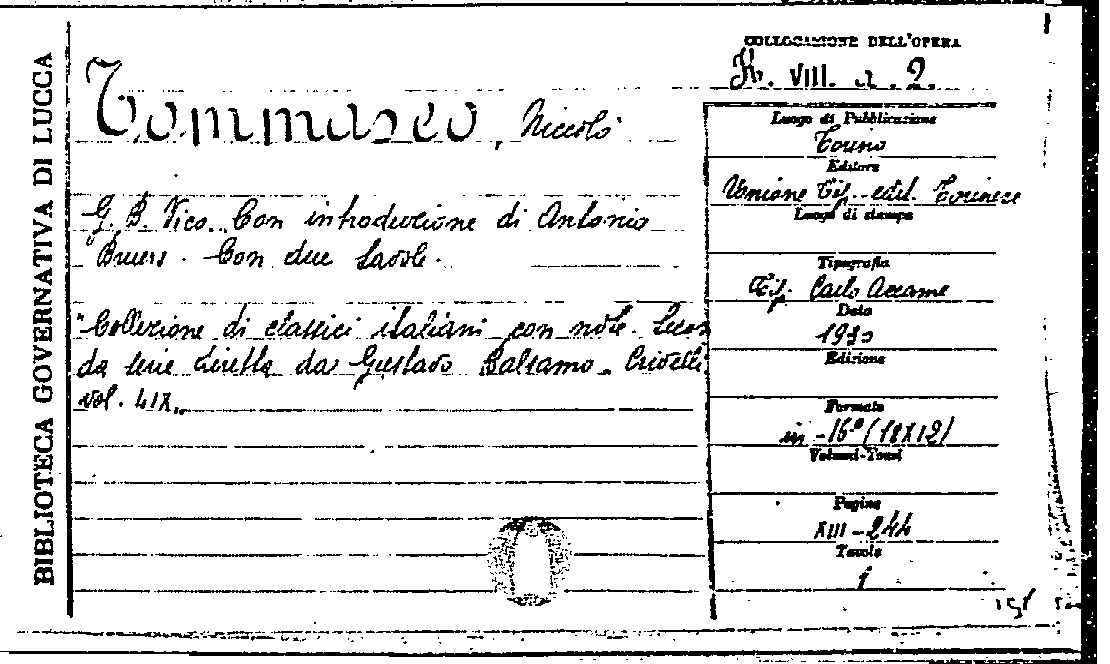 BIBLIOTECA GOVERNATIVA DI LUCCA
COLLOCAZIONE DELL'OPERA
VIII. a. 2.
Tommaseo, Niccolò
G. B. Vico. Con introduzione di Antonio
Bruers. Con due tavole.
"Collezione di classici italiani con note. Secon
da serie diretta da Gustavo Balsamo-Crivelli
vol. LIX„
Luogo di Pubblicazione
Torino
Editore
Unione Tip. edit. Torinese
Luogo di stampa
Tipografia
Tip. Carlo Accame
Data
1930
Edizione
Formato
in-16° (18x12)
Volumi-Tomi
Pagine
XIII-244
Tavole
1